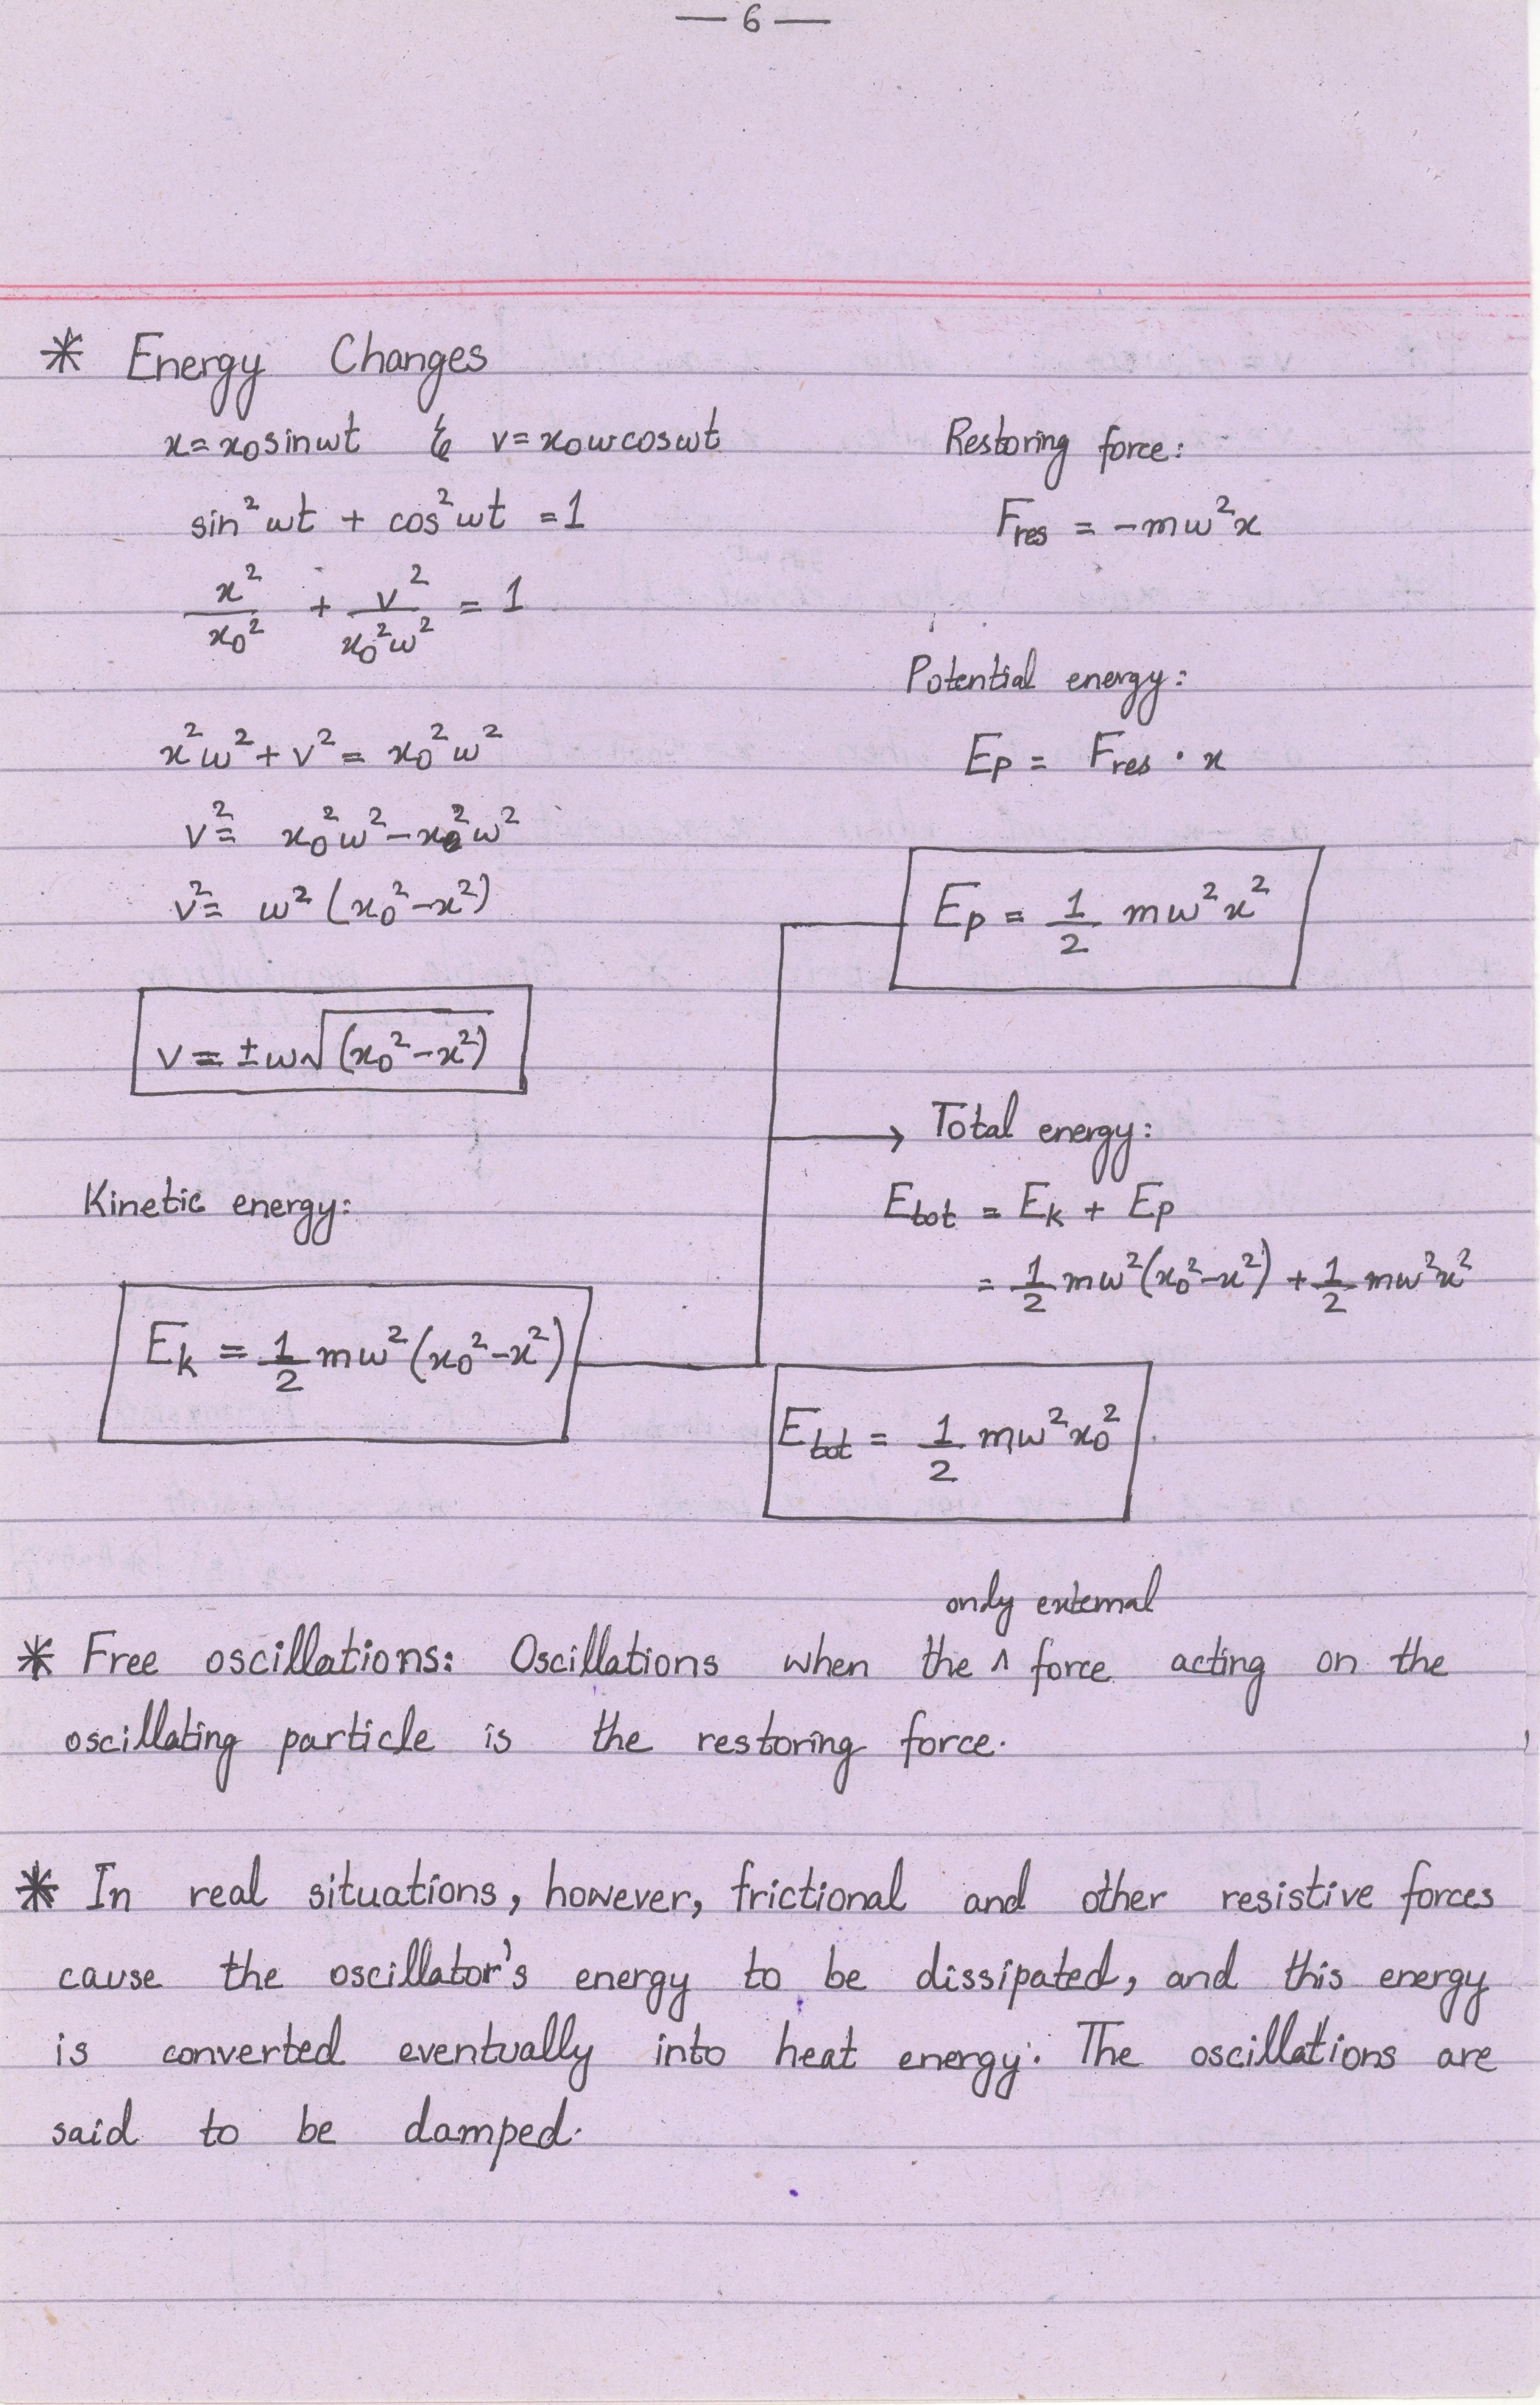 — 6 —
* Energy Changes
x = x₀sinωt & v = x₀ωcosωt
sin²ωt + cos²ωt = 1
x²/x₀² + v²/x₀²ω² = 1
x²ω² + v² = x₀²ω²
v² = x₀²ω² – x²ω²
v² = ω² (x₀² – x²)
v = ±ω√(x₀² – x²)
Kinetic energy:
Eₖ = 1/2 mω²(x₀² – x²)
Restoring force:
F_res = –mω²x
Potential energy:
Eₚ = F_res · x
Eₚ = 1/2 mω²x²
→ Total energy:
E_tot = Eₖ + Eₚ
= 1/2 mω²(x₀² – x²) + 1/2 mω²x²
E_tot = 1/2 mω²x₀²
only external
* Free oscillations: Oscillations when the ^ force acting on the
oscillating particle is the restoring force.
* In real situations, however, frictional and other resistive forces
cause the oscillator's energy to be dissipated, and this energy
is converted eventually into heat energy. The oscillations are
said to be damped.